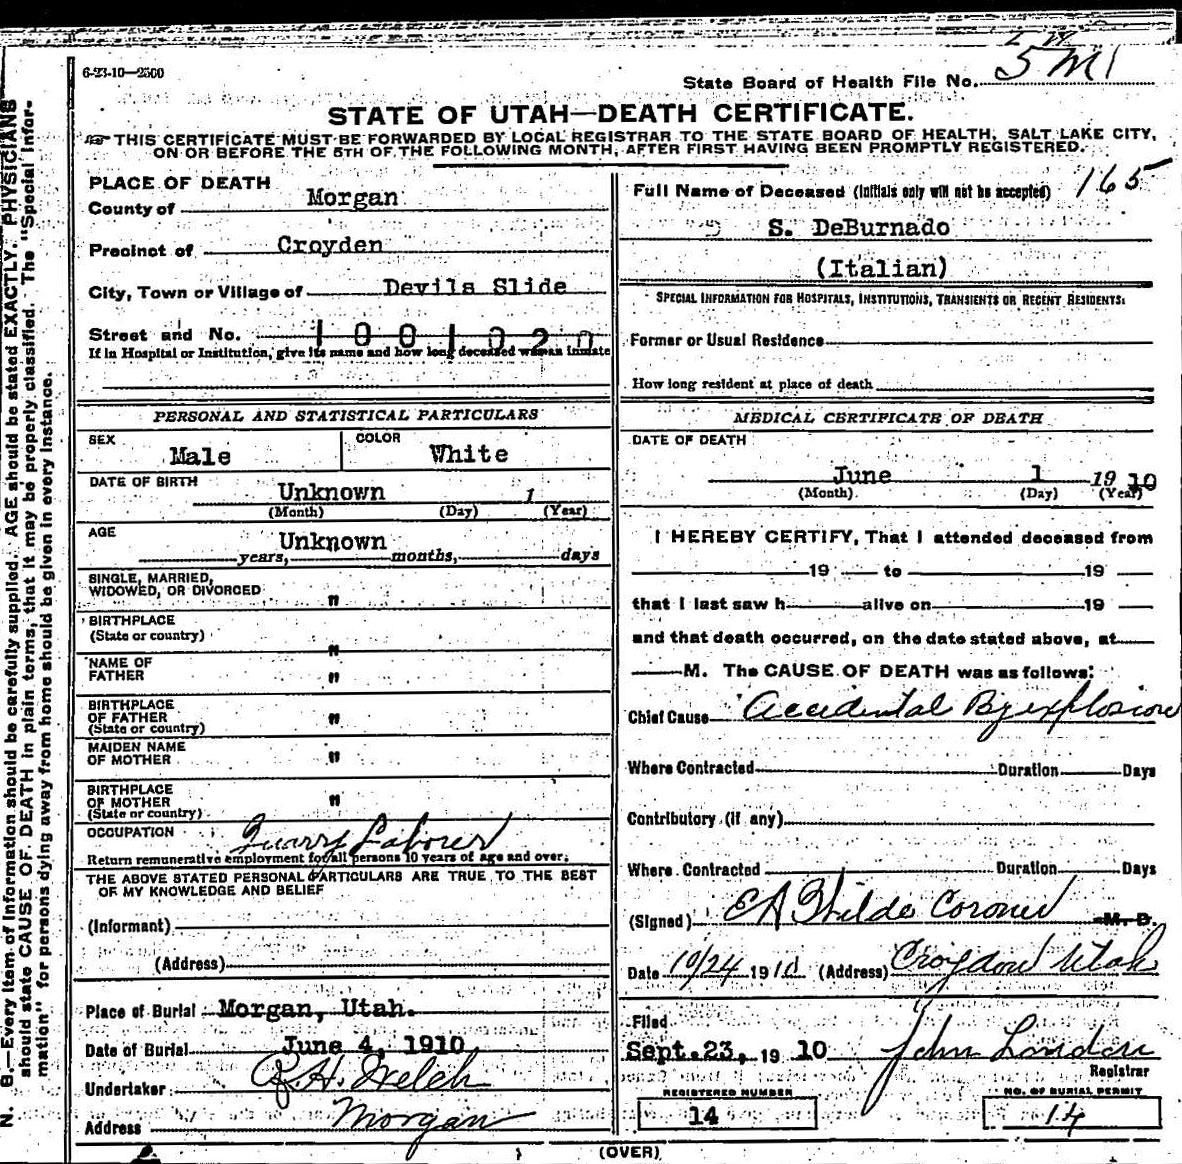 6-23-10—2500
State Board of Health File No. 5 M 1
STATE OF UTAH—DEATH CERTIFICATE.
THIS CERTIFICATE MUST BE FORWARDED BY LOCAL REGISTRAR TO THE STATE BOARD OF HEALTH, SALT LAKE CITY,
ON OR BEFORE THE 5TH OF THE FOLLOWING MONTH, AFTER FIRST HAVING BEEN PROMPTLY REGISTERED.
PLACE OF DEATH
County of Morgan
Precinct of Croyden
City, Town or Village of Devils Slide
Street and No. 1001020
If in Hospital or Institution, give its name and how long deceased was an inmate
PERSONAL AND STATISTICAL PARTICULARS
SEX Male COLOR White
DATE OF BIRTH Unknown 1
(Month) (Day) (Year)
AGE Unknown
years, months, days
SINGLE, MARRIED,
WIDOWED, OR DIVORCED "
BIRTHPLACE
(State or country) "
NAME OF
FATHER "
BIRTHPLACE
OF FATHER "
(State or country)
MAIDEN NAME
OF MOTHER "
BIRTHPLACE
OF MOTHER "
(State or country)
OCCUPATION Quarry Laborer
Return remunerative employment for all persons 10 years of age and over.
THE ABOVE STATED PERSONAL PARTICULARS ARE TRUE TO THE BEST
OF MY KNOWLEDGE AND BELIEF
(Informant)
(Address)
Place of Burial Morgan, Utah.
Date of Burial June 4, 1910
Undertaker H. Welch
Address Morgan
Full Name of Deceased (Initials only will not be accepted) 165
S. DeBurnado
(Italian)
SPECIAL INFORMATION FOR HOSPITALS, INSTITUTIONS, TRANSIENTS OR RECENT RESIDENTS:
Former or Usual Residence
How long resident at place of death
MEDICAL CERTIFICATE OF DEATH
DATE OF DEATH
June 1 1910
(Month) (Day) (Year)
I HEREBY CERTIFY, That I attended deceased from
19 to 19
that I last saw h alive on 19
and that death occurred, on the date stated above, at
M. The CAUSE OF DEATH was as follows:
Chief Cause Accidental By explosion
Where Contracted Duration Days
Contributory (if any)
Where Contracted Duration Days
(Signed) E A Wilde Coroner M. D.
Date 10/24 1910 (Address) Croydon Utah
Filed
Sept. 23, 19 10 John London
Registrar
REGISTERED NUMBER 14
NO. OF BURIAL PERMIT 14
(OVER)
N. B.—Every item of information should be carefully supplied. AGE should be stated EXACTLY. PHYSICIANS
should state CAUSE OF DEATH in plain terms, that it may be properly classified. The "Special Infor-
mation" for persons dying away from home should be given in every instance.